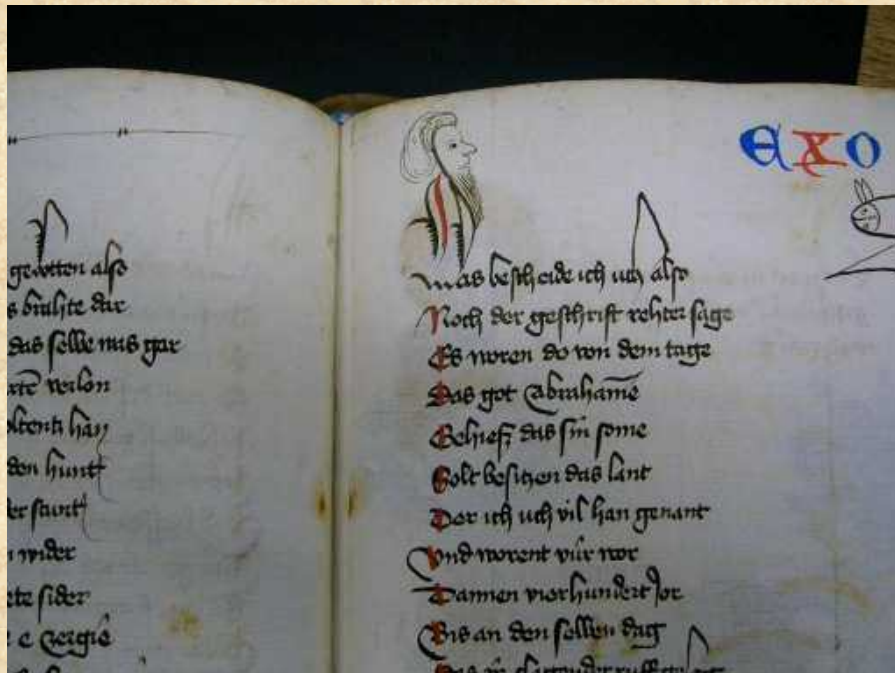 gebotten also
s brahte dar
das selbe mas gar
verlon
han
den hunt
der stunt
wider
sider
EXO
Was bescheide ich uch also
Noch der geschrift rehter sage
Es woren do von dem tage
Das got Abrahame
Gehiesz das sin some
Solt besitzen das lant
Der ich uch vil han genant
Und worent vür wor
Dannen vierhundert Jor
Bis an den selben dag